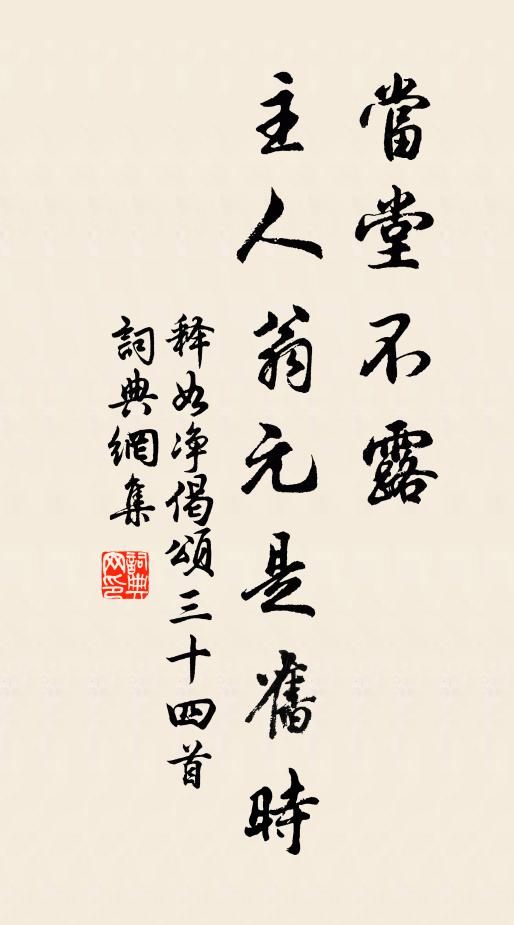 當堂不露
主人翁元是舊時
释如净偈頌三十四首
詞典網集
詞典網印